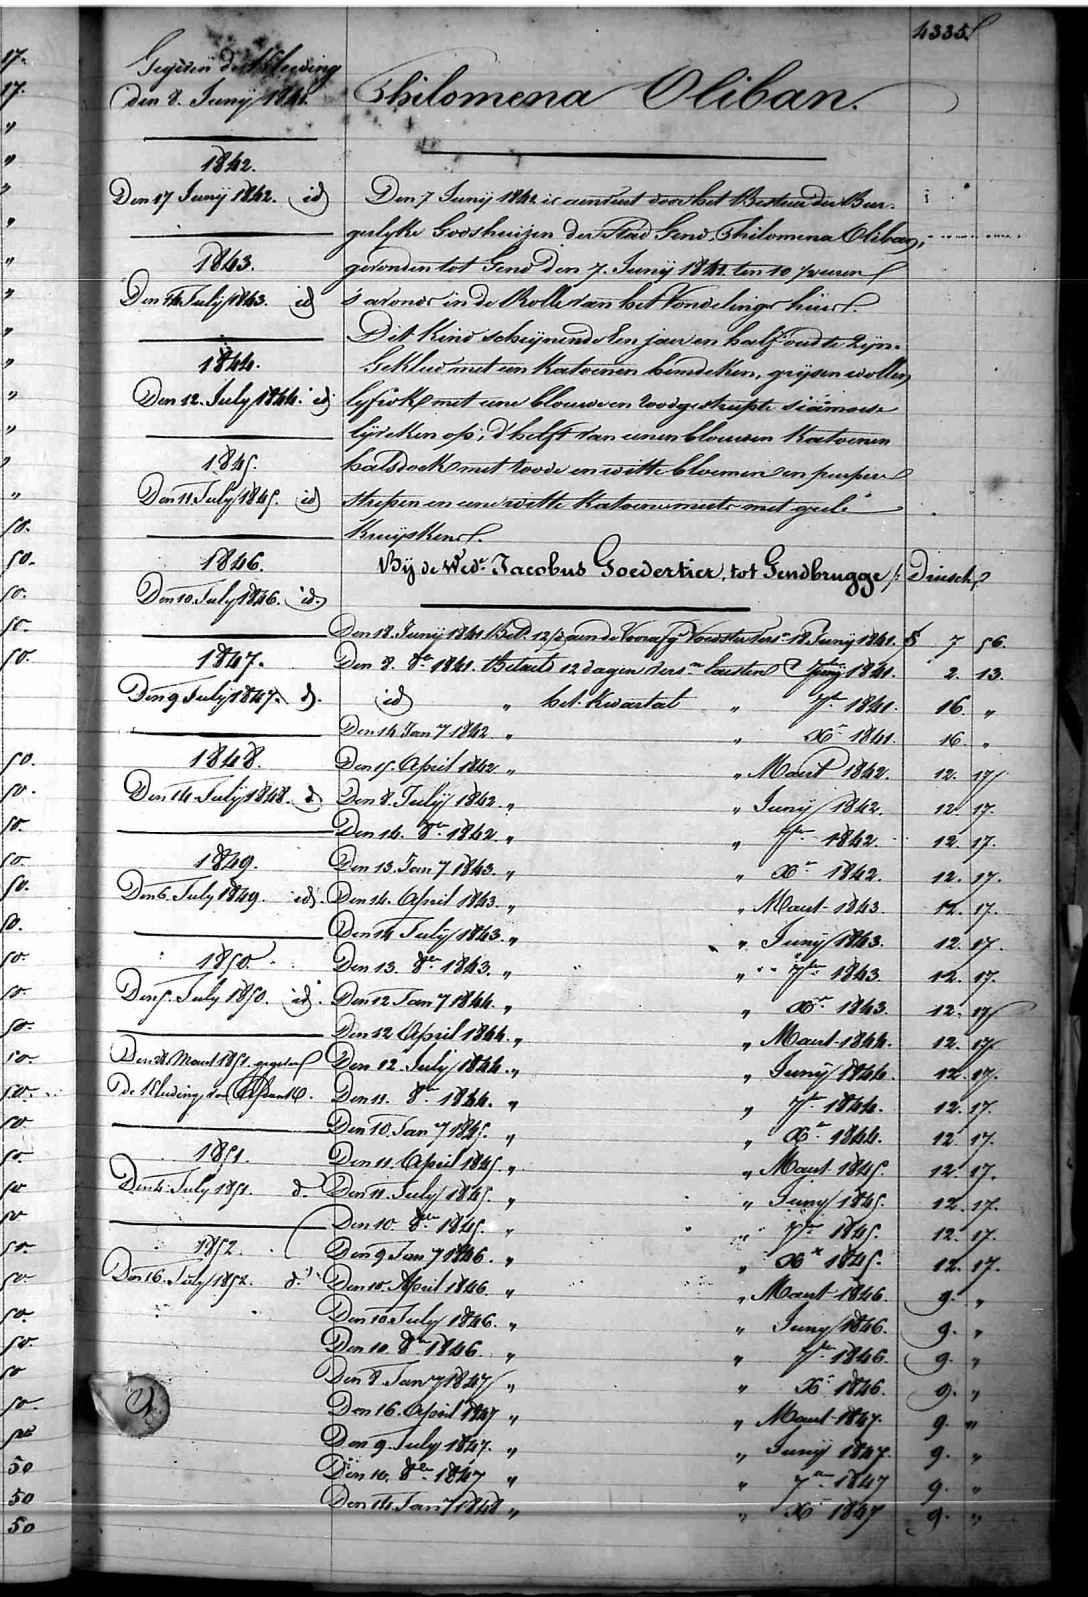 4335
Gegeven de Kleeding
den 8. Junij 1841.
Philomena Oliban.
1842.
Den 17 Junij 1842. id
1843.
Den 14 Julij 1843. id
1844.
Den 12. July 1844. id
1845.
Den 11. July 1845. id
1846.
Den 10. July 1846. id.
1847.
Den 9 Julij 1847. d.
1848.
Den 14. Julij 1848. d
1849.
Den 6. July 1849. id.
1850.
Den 5. July 1850. id.
Den 28. Maart 1851. gegeven
de Kleeding van
1851.
Den 4. July 1851. d.
1852.
Den 16. July 1852. d.
Den 7 Junij 1842 is aenveert door het Bestuer der Bur-
gerlyke Godshuizen der Stad Gend, Philomena Oliban,
gevonden tot Gend den 7. Junij 1841. ten 10 / ueren
s'avonds in de Rolle van het Vondelings huis.
Dit Kind schijnende Een jaer en half oud te Zijn.
Gekleed met een Katoenen hemdeken, grijsen wollen
lyfrok met eene blouwe en roodgestreepte siamoise
lijveken op; d'helft van eenen blouwen Katoenen
halsdoek met roode en witte bloemen en purpere
strepen en eene witte Katoene muts met geele
Kruijskens.
Bij de Wed.e Jacobus Goedertier, tot Gendbrugge /: Driesch
Den 18. Junij 1841 Bet. 12/ aen de Voorafg. Voedster vers. 18. Junij 1841. 7 56.
Den 8. 8.re 1841. Betaelt 12 dagen vers.n laesten Junij 1841. 2. 13.
id " het Kwartael " 7.re 1841. 16. "
Den 14. Jan.y 1842. " " X.re 1841. 16. "
Den 15. April 1842 " " Maert 1842. 12. 17
Den 8. Julij 1842. " " Junij 1842. 12. 17.
Den 14. 8.re 1842. " " 7.re 1842. 12. 17.
Den 13. Jan.y 1843. " " X.re 1842. 12. 17.
Den 14. April 1843. " " Maert 1843. 12. 17.
Den 14 Julij 1843. " " Junij 1843. 12. 17.
Den 13. 8.re 1843. " " 7.re 1843. 12. 17.
Den 12 Jan.y 1844. " " X.re 1843. 12. 17
Den 12 April 1844. " " Maert 1844. 12. 17
Den 12 July 1844. " " Junij 1844. 12. 17.
Den 11. 8.re 1844. " " 7.re 1844. 12. 17.
Den 10. Jan.y 1845. " " X.re 1844. 12. 17.
Den 11. April 1845. " " Maert 1845. 12. 17.
Den 11. July 1845. " " Juny 1845. 12. 17.
Den 10. 8.re 1845. " " 7.re 1845. 12. 17.
Den 9 Jan.y 1846. " " X.re 1845. 12. 17.
Den 10. April 1846. " " Maert 1846. 9. "
Den 10 July 1846. " " Juny 1846. 9. "
Den 10. 8.re 1846. " " 7.re 1846. 9. "
Den 8 Jan.y 1847 " " X.re 1846. 9. "
Den 16. April 1847 " " Maert 1847. 9. "
Den 9 July 1847. " " Junij 1847. 9. "
Den 10. 8.re 1847 " " 7.re 1847 9. "
Den 14. Jan.y 1848 " " X.re 1847 9. "